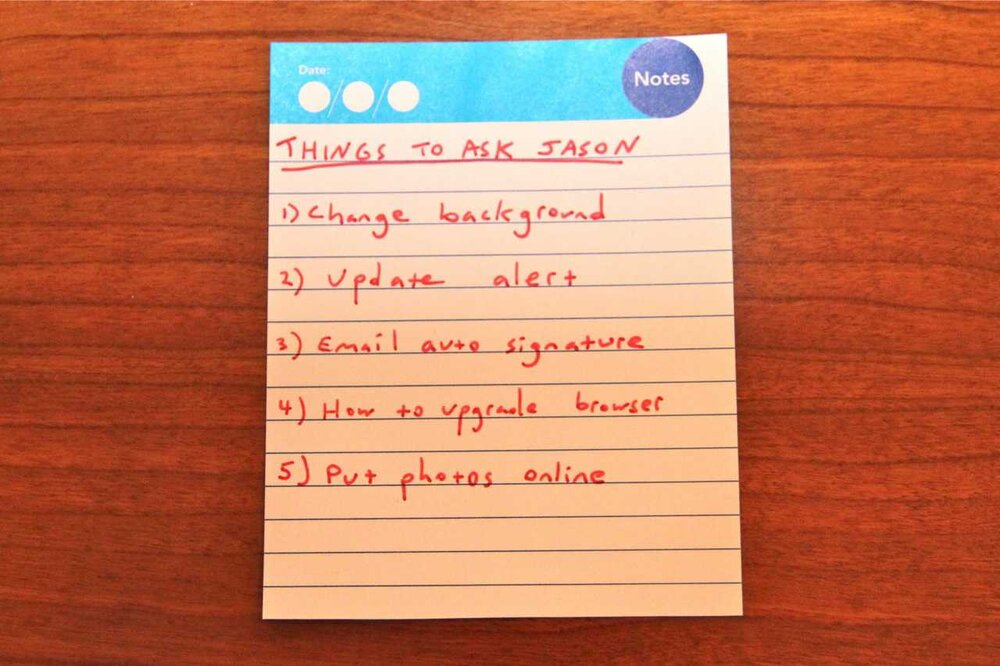 Date:
Notes
THINGS TO ASK JASON
1) Change background
2) Update alert
3) Email auto signature
4) How to upgrade browser
5) Put photos online